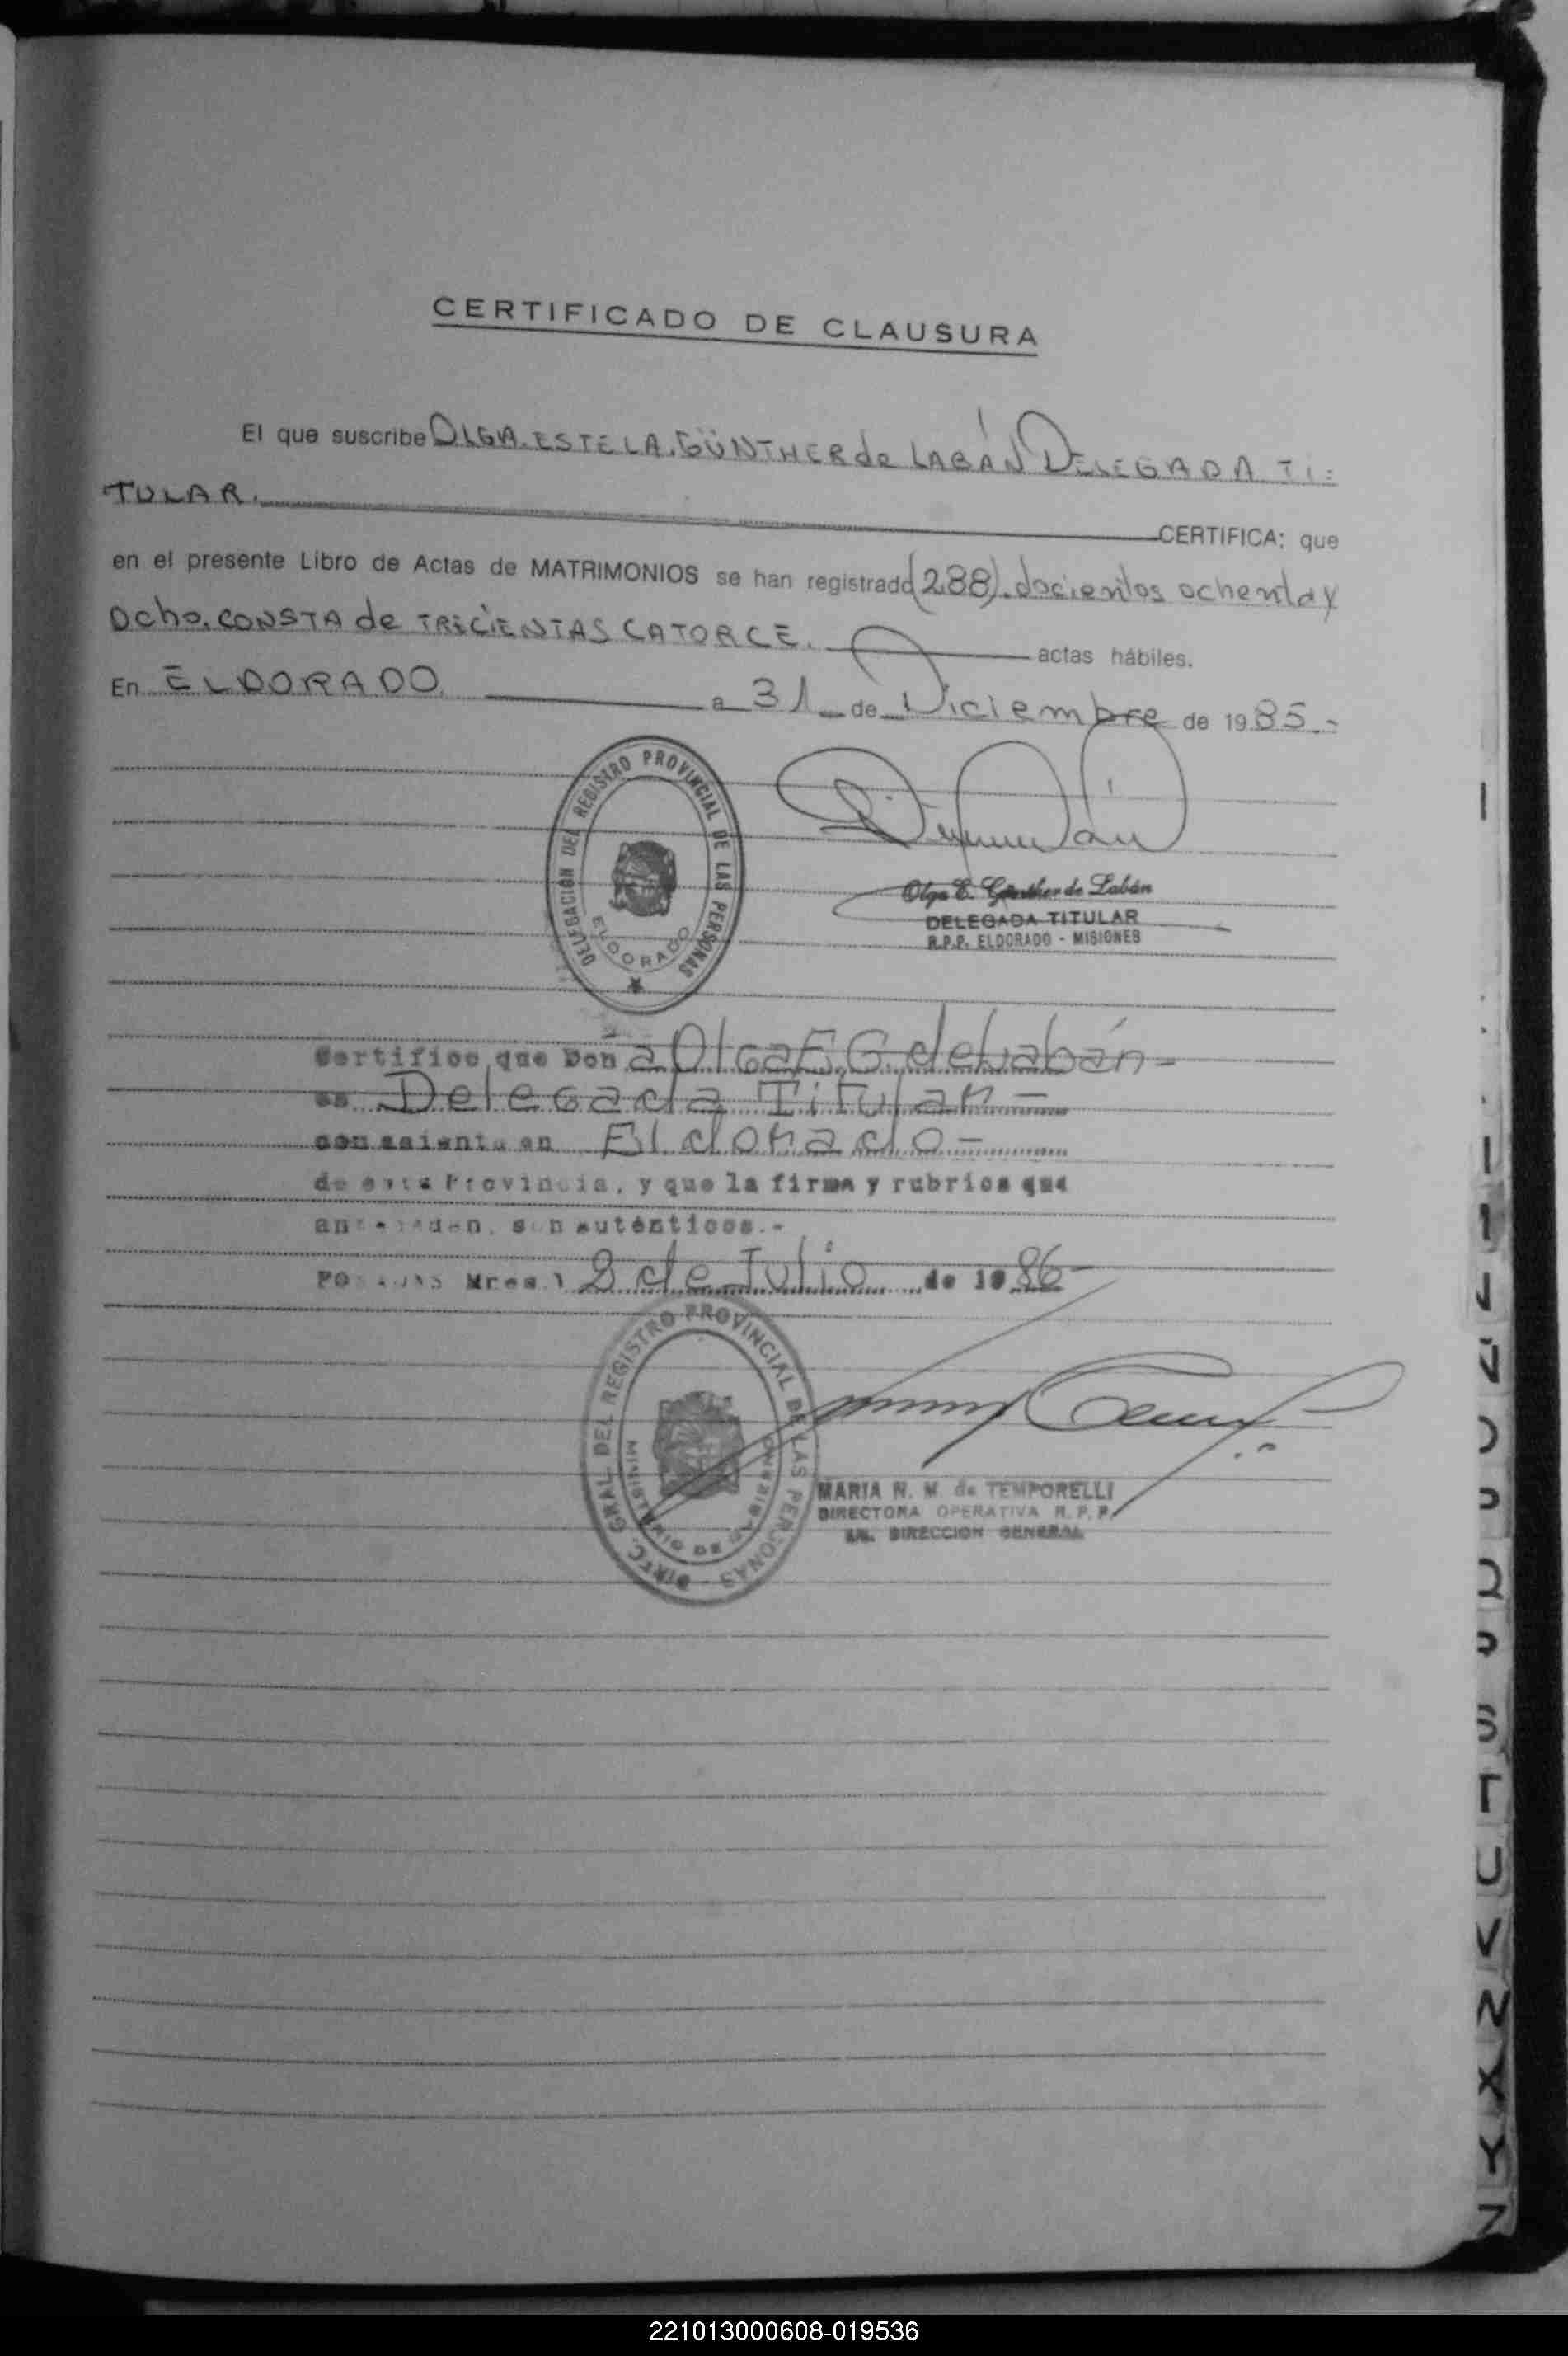 CERTIFICADO DE CLAUSURA
El que suscribe OLGA. ESTELA. GÜNTHER de LABÁN DELEGADA TI=
TULAR. CERTIFICA: que
en el presente Libro de Actas de MATRIMONIOS se han registrado (288). docientos ochenta y
Ocho. CONSTA de TRECIENTAS CATORCE. actas hábiles.
En ELDORADO a 31 de Diciembre de 1985.-
DELEGACIÓN DEL REGISTRO PROVINCIAL DE LAS PERSONAS
ELDORADO
Olga E. Günther de Labán
DELEGADA TITULAR
R.P.P. ELDORADO - MISIONES
Certifico que Don a Olga E. G. de Labán-
es Delegada Titular-
con asiento en Eldorado-
de esta Provincia, y que la firma y rubrica que
anteceden, son auténticos.-
POSADAS Mnes.) 2 de Julio de 1986-
DIREC. GRAL. DEL REGISTRO PROVINCIAL DE LAS PERSONAS
MINISTERIO DE GOBIERNO
MARIA N. M. de TEMPORELLI
DIRECTORA OPERATIVA R. P. P.
DIRECCION GENERAL
S
T
U
V
N
X
Y
Z
221013000608-019536